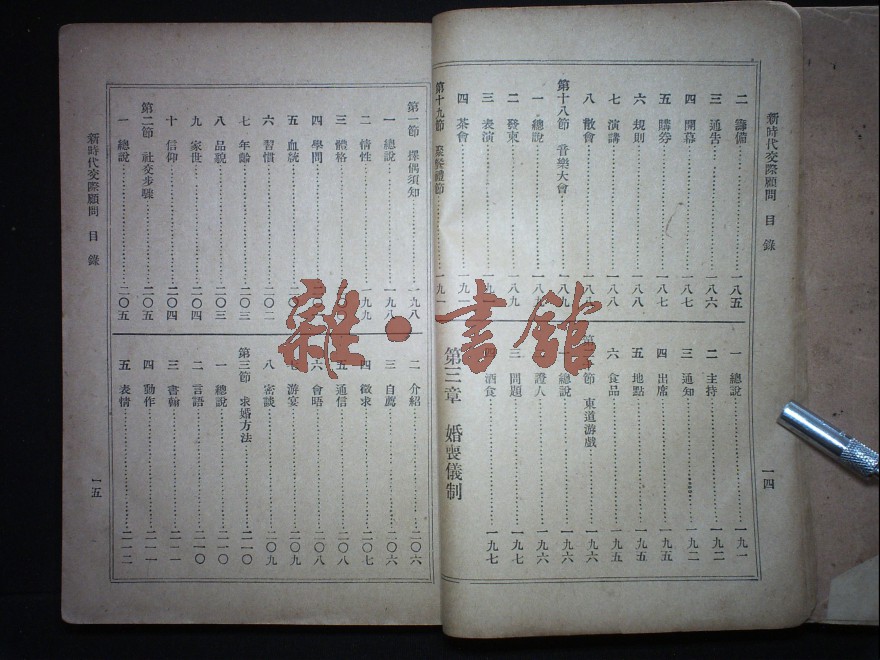 新時代交際顧問 目錄
一四
二 籌備 一八五
三 通告 一八六
四 開幕 一八七
五 購券 一八七
六 規則 一八八
七 演講 一八八
八 散會
第十八節 音樂大會 一八九
一 總說 一八九
二 發柬 一八九
三 表演
四 茶會
第十九節 聚餐禮節 一九一
一 總說 一九一
二 主持 一九二
三 通知 一九二
四 出席 一九五
五 地點 一九五
六 食品 一九五
節 東道游戲 一九六
一 總說 一九六
二 證人 一九六
三 問題 一九七
四 酒食 一九七
第三章 婚喪儀制
第一節 擇偶須知 一九八
一 總說 一九八
二 情性 一九九
三 體格
四 學問
五 血統
六 習慣 二〇二
七 年齡 二〇三
八 品貌 二〇三
九 家世 二〇四
十 信仰 二〇四
第二節 社交步驟 二〇五
一 總說 二〇五
二 介紹 二〇六
三 自薦 二〇六
四 徵求 二〇七
五 通信 二〇八
六 會晤 二〇八
七 游宴 二〇九
八 密談 二〇九
第三節 求婚方法 二一〇
一 總說 二一〇
二 言語 二一〇
三 書翰 二一一
四 動作 二一一
五 表情 二一二
新時代交際顧問 目錄
一五
雜·書館